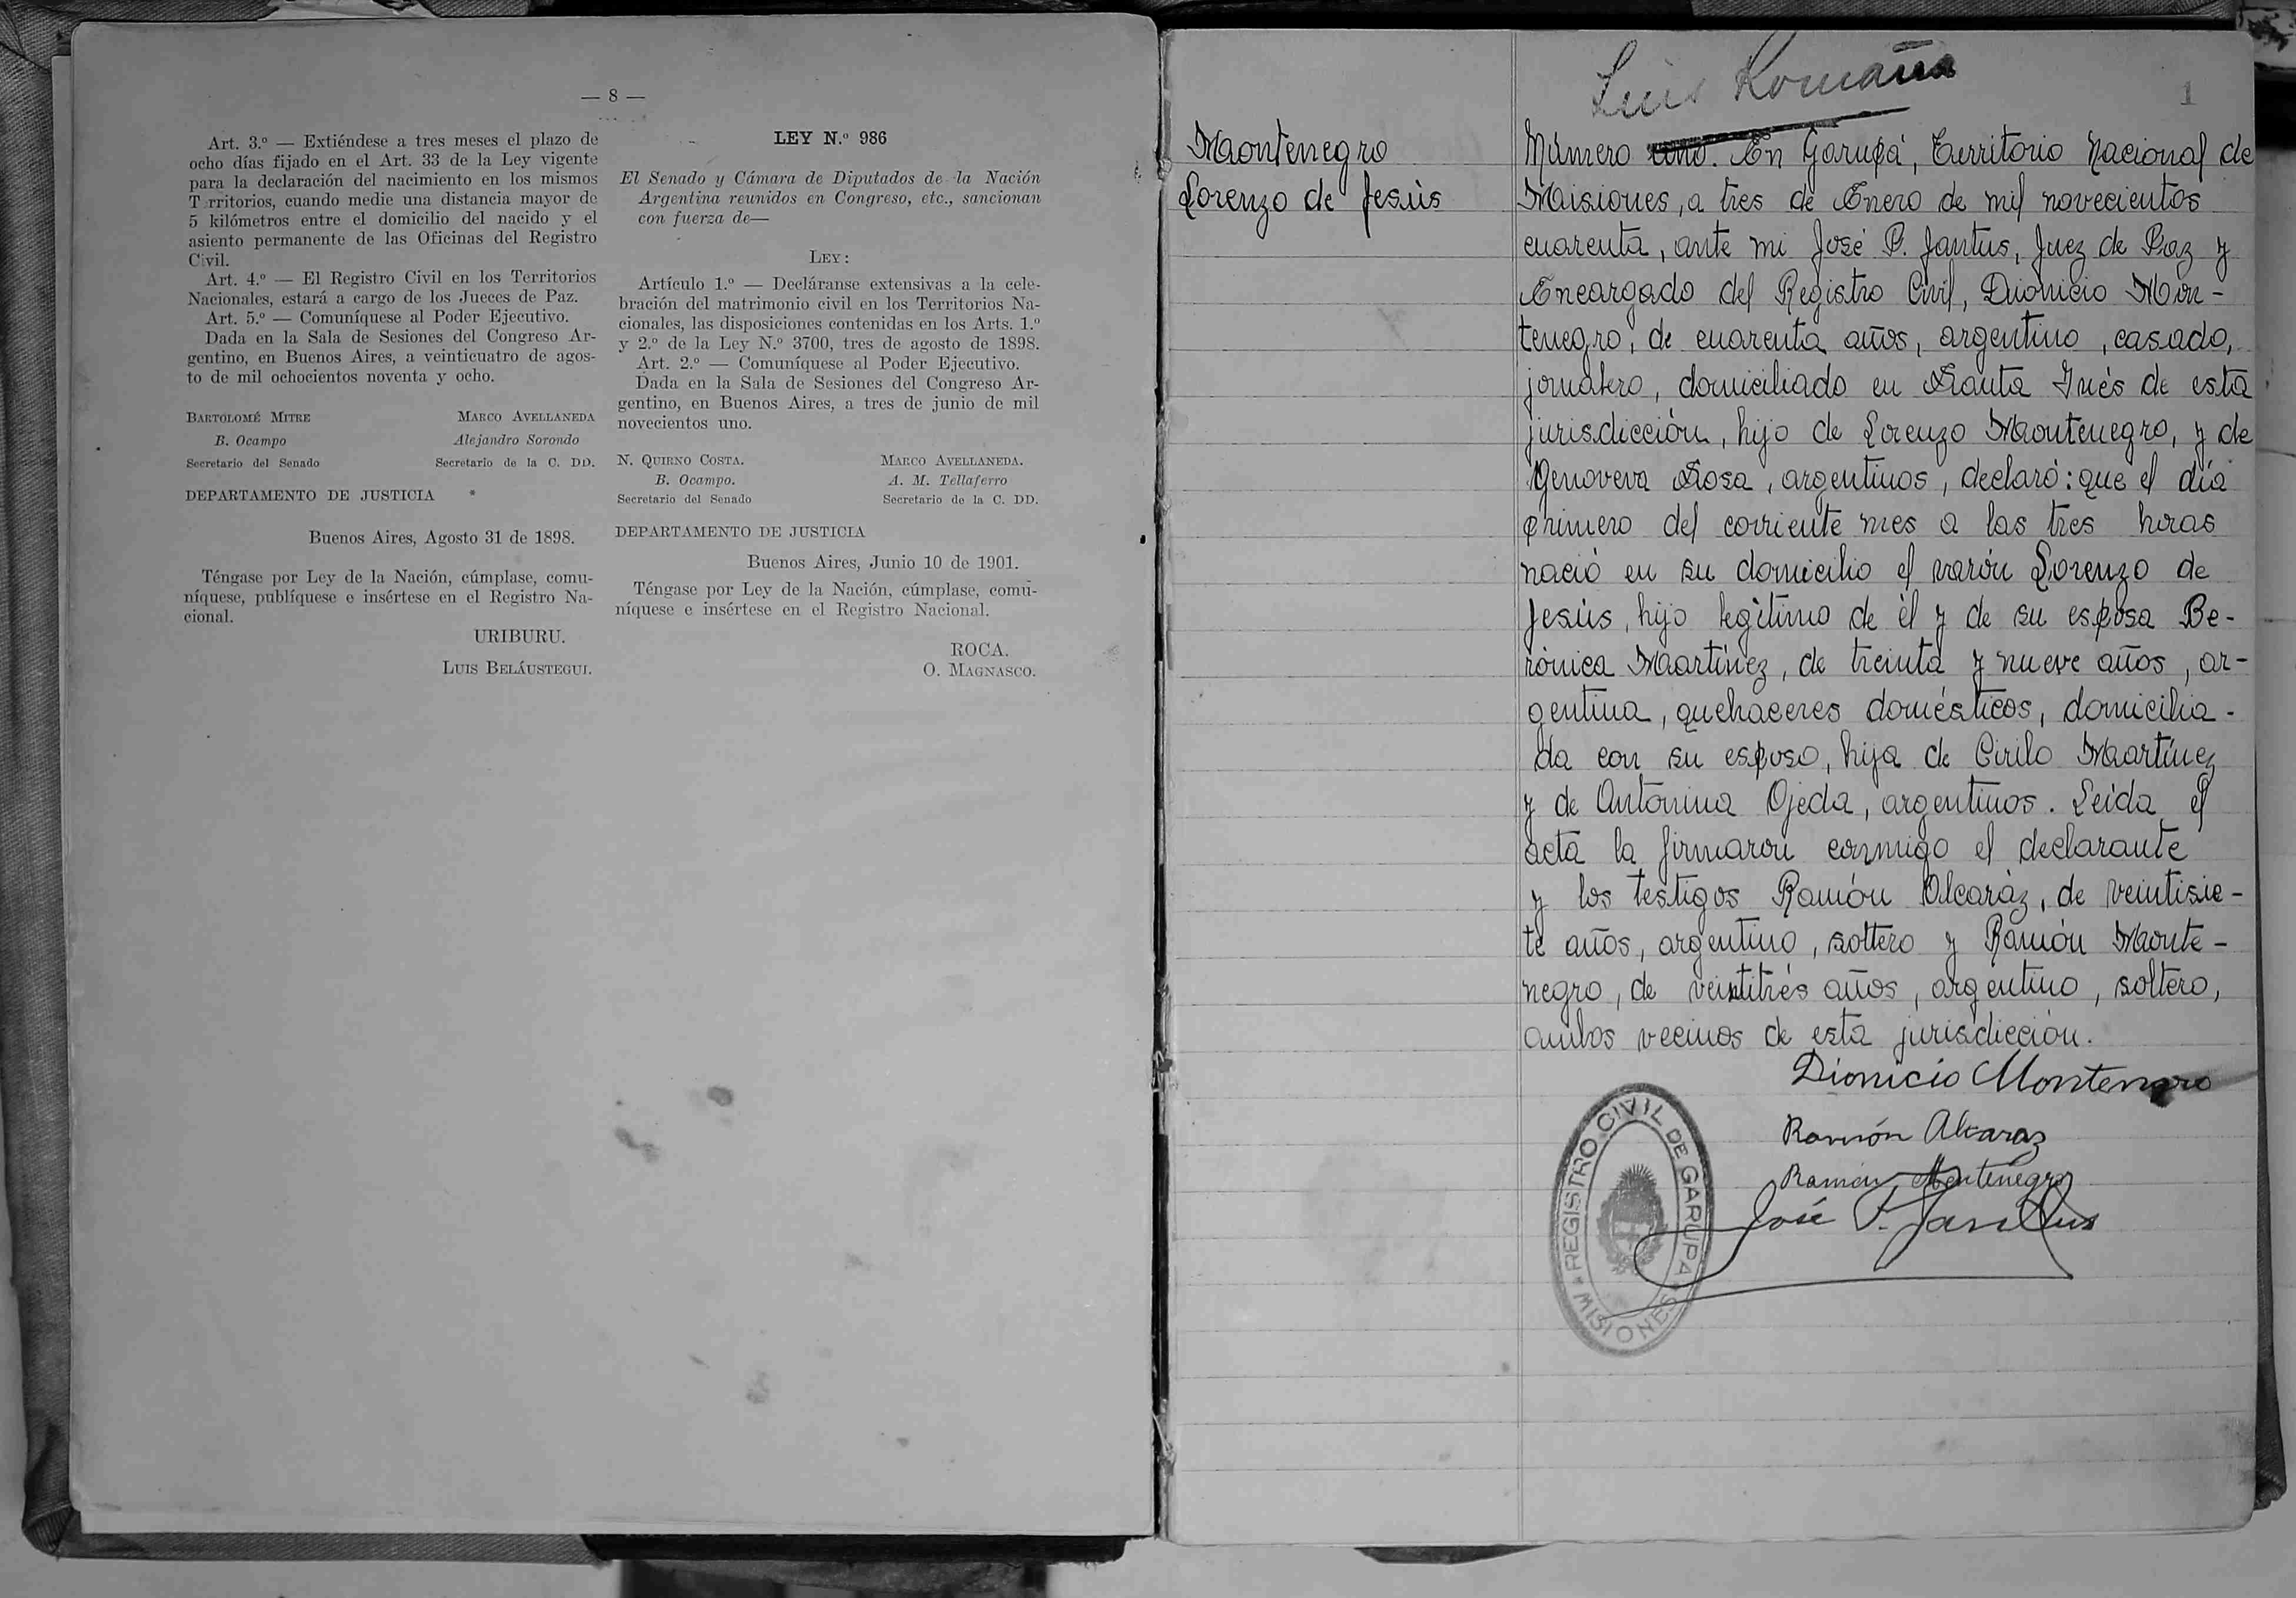 — 8 —
Art. 3.º — Extiéndese a tres meses el plazo de
ocho días fijado en el Art. 33 de la Ley vigente
para la declaración del nacimiento en los mismos
T rritorios, cuando medie una distancia mayor de
5 kilómetros entre el domicilio del nacido y el
asiento permanente de las Oficinas del Registro
Civil.
Art. 4.º — El Registro Civil en los Territorios
Nacionales, estará a cargo de los Jueces de Paz.
Art. 5.º — Comuníquese al Poder Ejecutivo.
Dada en la Sala de Sesiones del Congreso Ar-
gentino, en Buenos Aires, a veinticuatro de agos-
to de mil ochocientos noventa y ocho.
BARTOLOMÉ MITRE MARCO AVELLANEDA
B. Ocampo Alejandro Sorondo
Secretario del Senado Secretario de la C. DD.
DEPARTAMENTO DE JUSTICIA
Buenos Aires, Agosto 31 de 1898.
Téngase por Ley de la Nación, cúmplase, comu-
níquese, publíquese e insértese en el Registro Na-
cional.
URIBURU.
LUIS BELÁUSTEGUI.
LEY N.º 986
El Senado y Cámara de Diputados de la Nación
Argentina reunidos en Congreso, etc., sancionan
con fuerza de—
LEY:
Artículo 1.º — Decláranse extensivas a la cele-
bración del matrimonio civil en los Territorios Na-
cionales, las disposiciones contenidas en los Arts. 1.º
y 2.º de la Ley N.º 3700, tres de agosto de 1898.
Art. 2.º — Comuníquese al Poder Ejecutivo.
Dada en la Sala de Sesiones del Congreso Ar-
gentino, en Buenos Aires, a tres de junio de mil
novecientos uno.
N. QUIRNO COSTA. MARCO AVELLANEDA.
B. Ocampo. A. M. Tellaferro
Secretario del Senado Secretario de la C. DD.
DEPARTAMENTO DE JUSTICIA
Buenos Aires, Junio 10 de 1901.
Téngase por Ley de la Nación, cúmplase, comu-
níquese e insértese en el Registro Nacional.
ROCA.
O. MAGNASCO.
Luis Romaña
1
Montenegro
Lorenzo de Jesús
Número uno. En Garupá, Territorio Nacional de
Misiones, a tres de Enero de mil novecientos
cuarenta, ante mi José P. Jantus, Juez de Paz y
Encargado del Registro Civil, Dionicio Mon-
tenegro, de cuarenta años, argentino, casado,
jornalero, domiciliado en Santa Inés de esta
jurisdicción, hijo de Lorenzo Montenegro, y de
Genoveva Sosa, argentinos, declaró: que el día
primero del corriente mes a las tres horas
nació en su domicilio el varón Lorenzo de
Jesús, hijo legítimo de él y de su esposa Be-
rónica Martínez, de treinta y nueve años, ar-
gentina, quehaceres domésticos, domicilia-
da con su esposo, hija de Cirilo Martínez
y de Antonina Ojeda, argentinos. Leida el
acta la firmaron conmigo el declarante
y los testigos Ramón Alcaráz, de veintisie-
te años, argentino, soltero y Ramón Monte-
negro, de veintitrés años, argentino, soltero,
ambos vecinos de esta jurisdicción.
Dionicio Montenegro
Ramón Alcaraz
Ramón Montenegro
José P. Jantus
REGISTRO CIVIL DE GARUPA
MISIONES